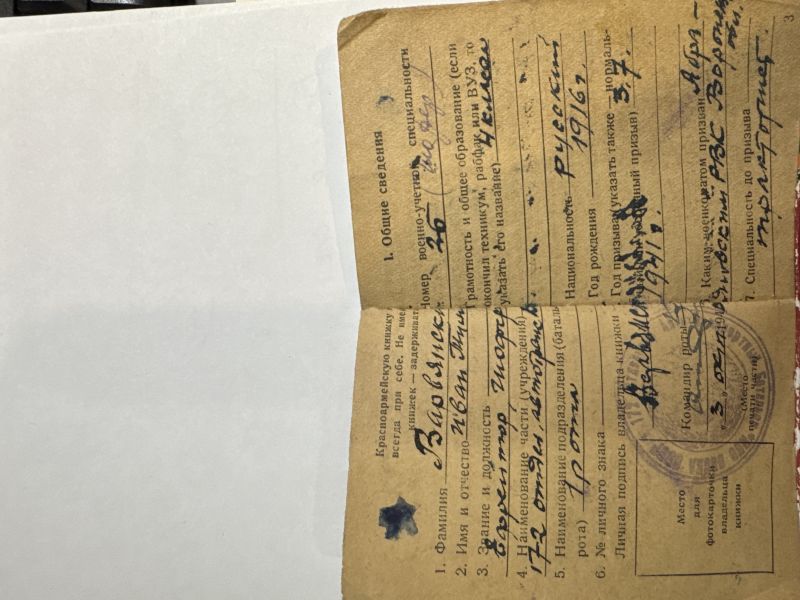 Красноармейскую книжку
всегда при себе. Не име
книжек — задерживат
1. Фамилия Варвянски
2. Имя и отчество Иван
3. Звание и должность
Ефрейтор шофер
4. Наименование части (учреждения)
172 отдел. автотрансп.
5. Наименование подразделения (баталь
рота) 1 рота
6. № личного знака
Личная подпись владельца книжки
Командир роты
"3" окт 194
(Место
печати части)
Место
для
фотокарточки
владельца
книжки
1. Общие сведения
Номер военно-учетной специальности
26 (шофер)
Грамотность и общее образование (если
окончил техникум, рабфак или ВУЗ, то
указать его название) 4 класса
Национальность русский
Год рождения 1916 г.
Год призыва (указать также нормаль-
ный призыв) 3.7.
1941 г.
Каким военкоматом призван
РВК Воронеж
обл.
7. Специальность до призыва
тракторист.
3